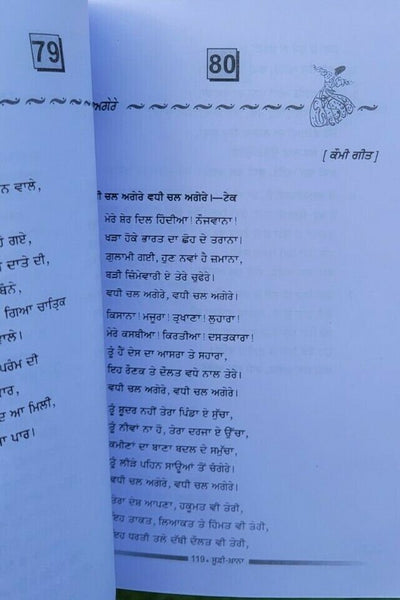 79
ਨ ਵਾਲੇ,
ਗਏ,
ਦਾਤੇ ਦੀ,
ਬੰਨੇ,
ਗਿਆ ਚਾਤ੍ਰਿਕ
ਵਾਲੇ।
ਪਰੰਮ ਦੀ
ਪਾਰ,
ਆ ਮਿਲੀ,
ਪਾਰ।
80
ਅਗੇਰੇ
[ ਕੌਮੀ ਗੀਤ ]
ਚਲ ਅਗੇਰੇ ਵਧੀ ਚਲ ਅਗੇਰੇ।—ਟੇਕ
ਮੇਰੇ ਸ਼ੇਰ ਦਿਲ ਹਿੰਦੀਆ! ਨੌਜਵਾਨਾ!
ਖੜਾ ਹੋਕੇ ਭਾਰਤ ਦਾ ਛੋਹ ਦੇ ਤਰਾਨਾ।
ਗੁਲਾਮੀ ਗਈ, ਹੁਣ ਨਵਾਂ ਹੈ ਜ਼ਮਾਨਾ,
ਬੜੀ ਜ਼ਿੰਮੇਵਾਰੀ ਏ ਤੇਰੇ ਚੁਫੇਰੇ।
ਵਧੀ ਚਲ ਅਗੇਰੇ, ਵਧੀ ਚਲ ਅਗੇਰੇ।
ਕਿਸਾਨਾ! ਮਜੂਰਾ! ਤ੍ਰਖਾਣਾ! ਲੁਹਾਰਾ!
ਮੇਰੇ ਕਸਬੀਆ! ਕਿਰਤੀਆ! ਦਸਤਕਾਰਾ!
ਤੂੰ ਹੈਂ ਦੇਸ ਦਾ ਆਸਰਾ ਤੇ ਸਹਾਰਾ,
ਇਹ ਰੌਣਕ ਤੇ ਦੌਲਤ ਵਧੇ ਨਾਲ ਤੇਰੇ।
ਵਧੀ ਚਲ ਅਗੇਰੇ, ਵਧੀ ਚਲ ਅਗੇਰੇ।
ਤੂੰ ਸ਼ੂਦਰ ਨਹੀਂ ਤੇਰਾ ਪਿੰਡਾ ਏ ਸੁੱਚਾ,
ਤੂੰ ਨੀਵਾਂ ਨਾ ਹੋ, ਤੇਰਾ ਦਰਜਾ ਏ ਉੱਚਾ,
ਕਮੀਣਾਂ ਦਾ ਬਾਣਾ ਬਦਲ ਦੇ ਸਮੁੱਚਾ,
ਤੂੰ ਲੀੜੇ ਪਹਿਨ ਸਾਊਆਂ ਤੋਂ ਚੰਗੇਰੇ।
ਵਧੀ ਚਲ ਅਗੇਰੇ, ਵਧੀ ਚਲ ਅਗੇਰੇ।
ਤੇਰਾ ਦੇਸ਼ ਆਪਣਾ, ਹਕੂਮਤ ਵੀ ਤੇਰੀ,
ਇਹ ਤਾਕਤ, ਲਿਆਕਤ ਤੇ ਹਿੰਮਤ ਵੀ ਤੇਰੀ,
ਇਹ ਧਰਤੀ ਤਲੇ ਦੱਬੀ ਦੌਲਤ ਵੀ ਤੇਰੀ,
119 • ਸੂਫ਼ੀ-ਖ਼ਾਨਾ